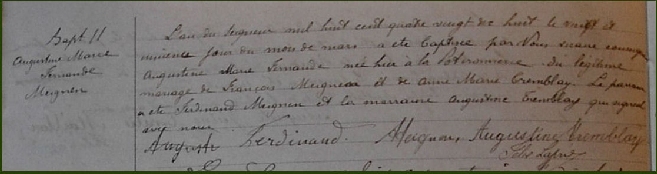 Bapt. 11
Augustine Marie
Fernande
Meignen
L'an du Seigneur mil huit cent quatre vingt dix huit le vingt et
unieme jour du mois de mars a ete baptisee par Nous
Augustine Marie Fernande née hier à la du légitime
mariage de François Meignen et de Anne Marie Tremblay. Le parrain
a été Ferdinand Meignen et la marraine Augustine Tremblay qui signent
avec nous.
Ferdinand Meignen Augustine Tremblay